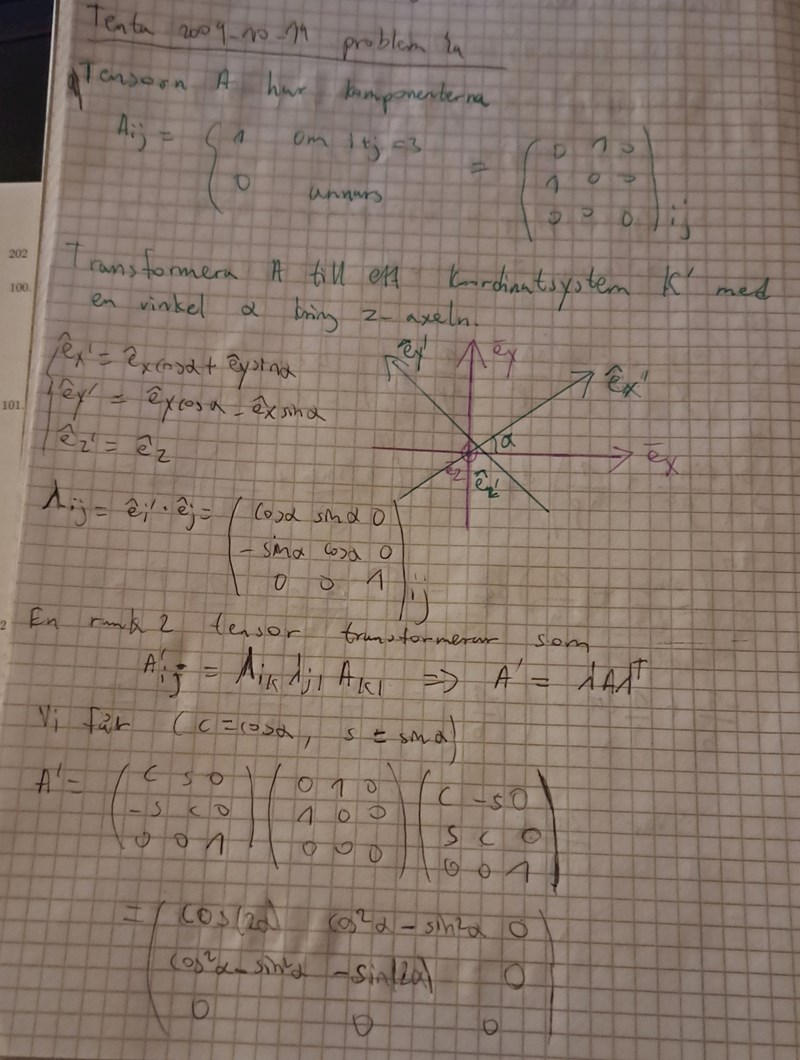 Tenta 2009-10-19 problem 2a
Tensorn A har komponenterna
A_ij = { 1 om i+j=3
0 annars = ( 0 1 0
1 0 0
0 0 0 )_ij
202
Transformera A till ett koordinatsystem K' med
100
en vinkel α kring z-axeln.
ê_x' = ê_x cosα + ê_y sinα
ê_y' = ê_y cosα - ê_x sinα
ê_z' = ê_z
101
ê_y' ē_y ê_x'
α
ē_x
ē_z ê_z'
λ_ij = ê_i' · ê_j = ( cosα sinα 0
-sinα cosα 0
0 0 1 )_ij
2
En rank 2 tensor transformerar som
A'_ij = λ_ik λ_jl A_kl ⇒ A' = λAλ^T
Vi får (c = cosα, s = sinα)
A' = ( c s 0
-s c 0
0 0 1 ) ( 0 1 0
1 0 0
0 0 0 ) ( c -s 0
s c 0
0 0 1 )
= ( cos(2α) cos²α - sin²α 0
cos²α - sin²α -sin(2α) 0
0 0 0 )